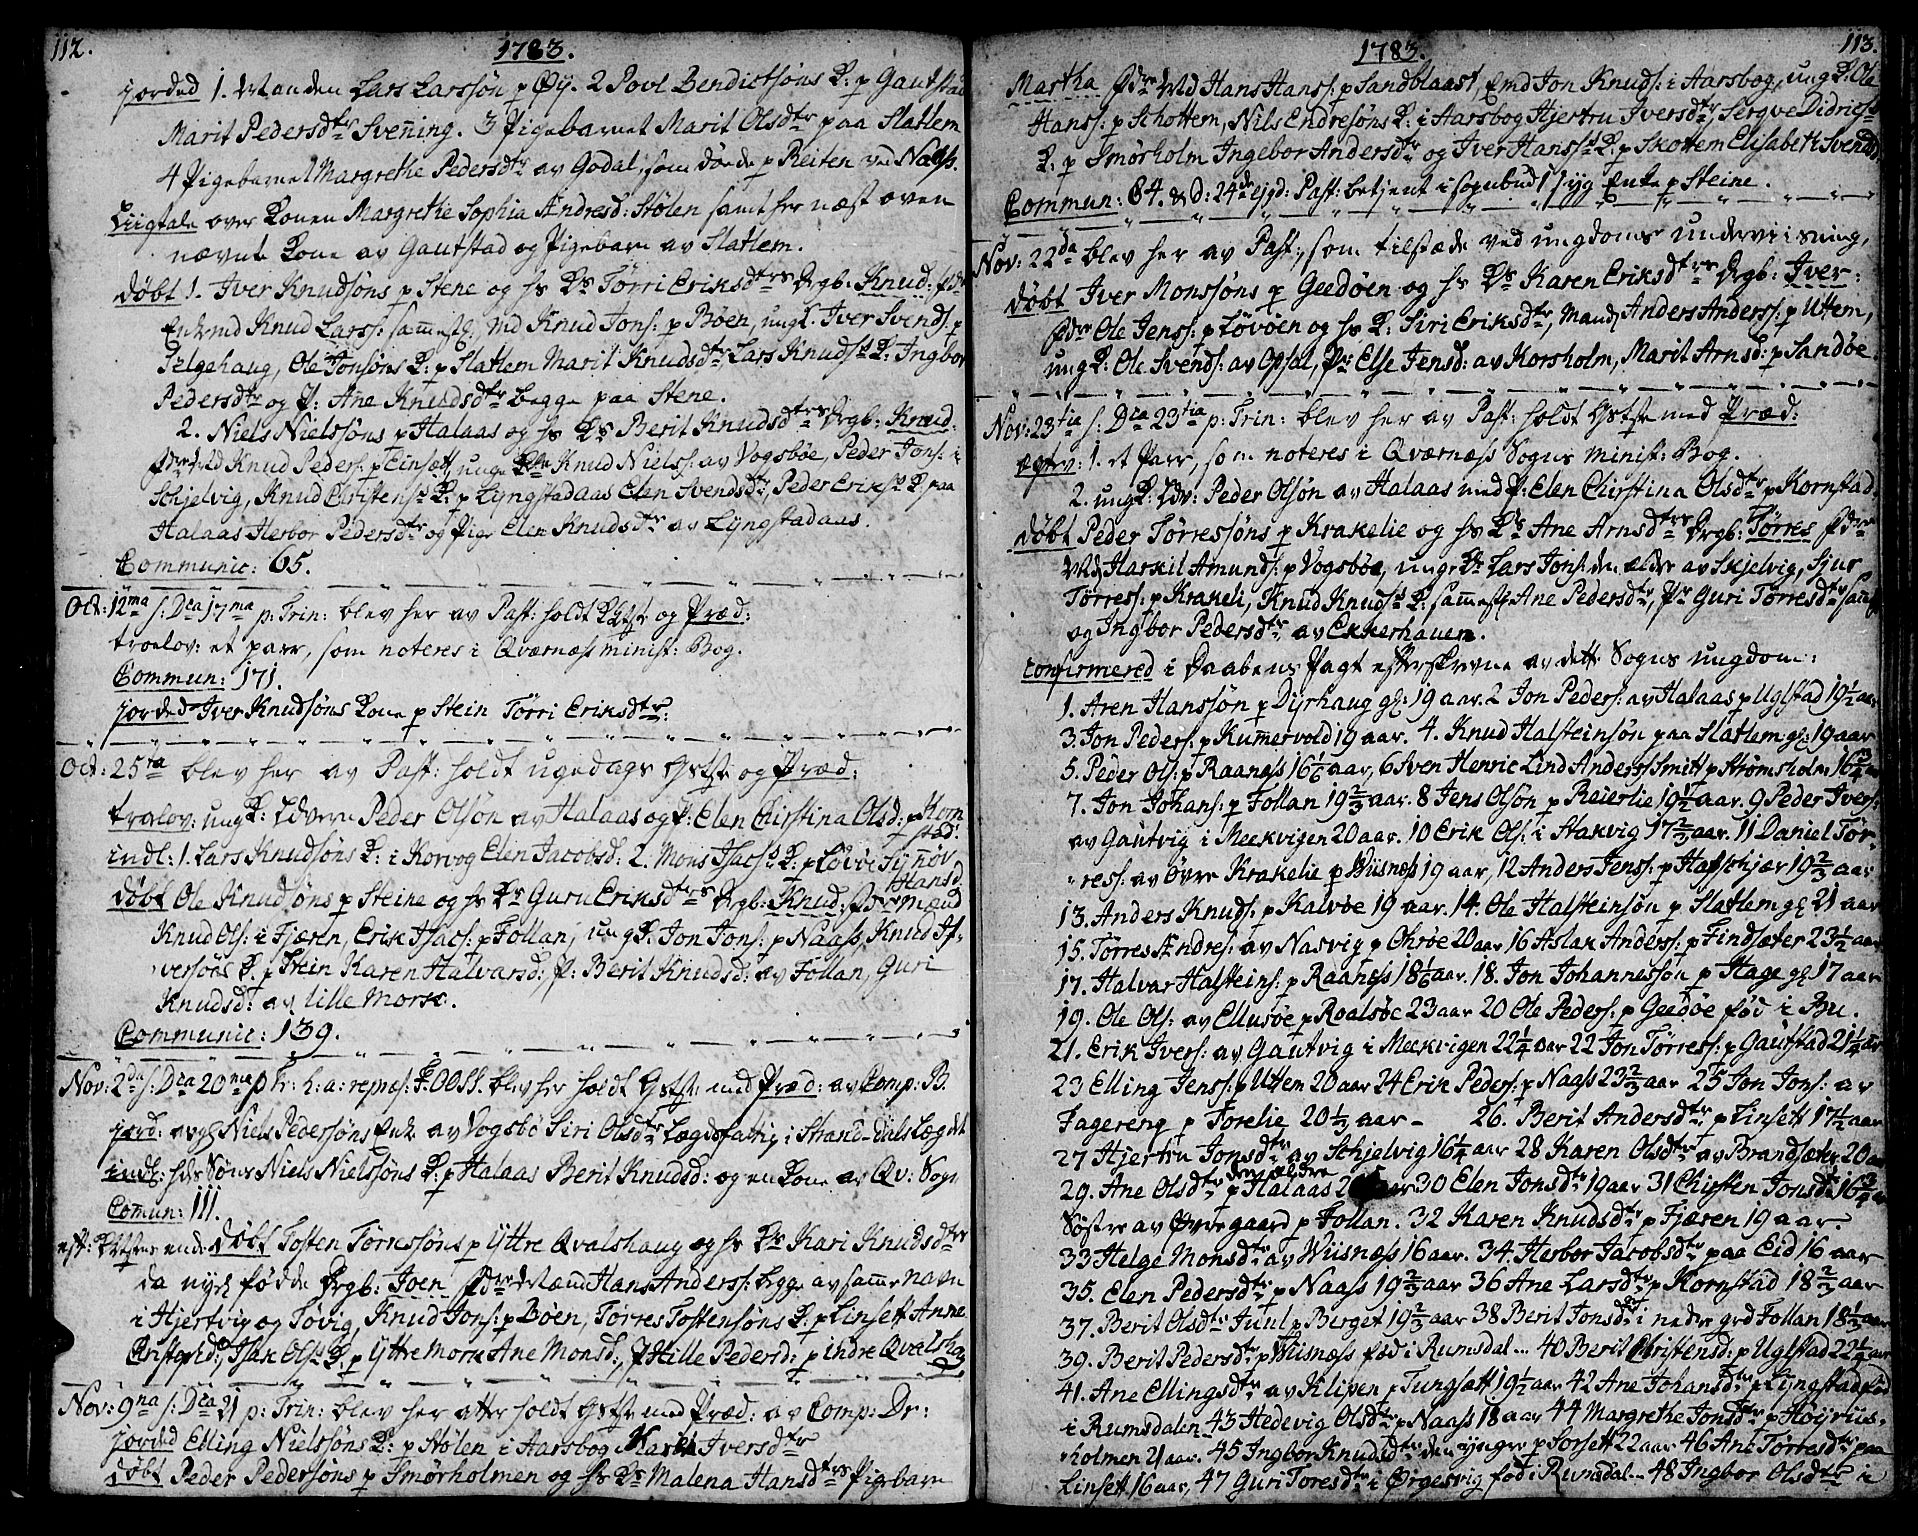 112.
1783.
jorded 1. Manden Lars Larssøn p Øÿ. 2 Povl Bendictsøns K: p Gautstad
Marit Pedersdtr Svenning. 3 Pigebarnet Marit Olsdtr paa Slatlem
4 Pigebarnet Margrethe Pedersdtr av Godal, som døde p Reiten ved Naass.
Liigtale over Konen Margrethe Sophia Andresd: Stølen samt her næst oven
nævnte Kone av Gautstad og Pigebarn av Slatlem.
døbt 1. Iver Knudsøns p Stene og hs Ks Tørri Eriksdtrs Drgb: Knud: fdre
Enkemd Knud Larss: sammestg, Md Knud Jons: p Bøen, ungk. Iver Svends: p
Helgehaug, Ole Jonsøns K: p Slatlem Marit Knudsdtr, Lars Knudss K: Ingbor
Pedersdtr og P: Ane Knudsdtr begge paa Stene.
2. Niels Nielsøns p Halaas og hs Ks Berit Knudsdtrs Drgb: Knud.
fdre Md Knud Peders: p Einsett, unge Kle Knud Niels: av Vogsbøe, Peder Jons: i
Schjelvig, Knud Christens: K: p Lyngstadaas Elen Svendsdtr, Peder Eriks: K: paa
Halaas Herbor Pedersdtr og Pige Elen Knudsdtr av Lÿngstadaas.
Communic: 65.
Oct: 12ma s: Dca 17ma p: Trin: blev her av Past: holdt Gtste og Præd:
troelov: et parr, som noteres i Qværnæss minist: Bog.
Commun: 171.
jorded Iver Knudsøns Kone p Stein Tørri Eriksdtr:
Oct: 25ta blev her av Past: holdt ugedags Gtste og Præd:
troelov: ungk: Peder Olsøn av Halaas og P: Elen Chirstina Olsd: p Korn
stad.
indl: 1. Lars Knudsøns K: i Korvog Elen Jacobsd: 2. Mons Isacs: K: p Løvöe Synnøv
Hansd.
døbt Ole Knudsøns p Steine og hs Ks Guru Eriksdtrs Drgb: Knud. fdre mænd
Knud Ols: i Fjæren, Erik Isacs: p Follan, ungk. Jon Jons: p Naass, Knud If-
versøns K. p Stein Karen Halvarsd: P: Berit Knudsd: av Follan, Guri
Knudsd: av lille Morsc.
Communic: 139.
Nov: 2da s: Dca 20ma p Tr: h: a: repræs: F. OO SS. blev her holdt Gtste med Præd: av Comp: B.
jord: avg Niels Pedersøns Enk av Vogsbø Siri Olsdtr Lægdsfattig i Strand-dals Lægdet
indl: hds Søns Niels Nielsøns K: p Halaas Berit Knudsd: og en Kone av Qv: Sogn
Comun: 111.
eft: endt døbt Tosten Tørressøns p Ÿttre Qvalshaug og hs Ks Kari Knudsdtrs
da nyl fødde Drgb: Joen fdre Mænd Hans Anderss: begge av samme navn
i Hjertvig og Tøvig, Knud Jons: p Bøen, Tørres Tostensøns K. p Linsett Anne
Cristophd: Isak Ols: K. p Ÿttre Mork Ane Monsd:, P Hille Pedersd: p indre Qvalshau
Nov: 9na s: Dca 21 p: Trin: blev her atter holdt Gtste med Præd: av Comp: Dr:
jorded Elling Nielsøns K: p Stølen i Aarsbog Karen Iversdtr
døbt Peder Pedersøns p Smørholmen og hs Ks Malena Hansdtrs Pigebarn
113.
1783.
Martha fdre Md Hans Hans: p Sandblaast, Emd Jon Knuds: i Aarsbog, ungk: Ole
Hans: p Schottem, Nils Endresøns K: i Aarsbog Hjertru Iversdtr, Sergve Didrics:
K. p Smørholm Ingebor Andersdtr og Iver Hanss: K. p Skottem Elisabeth Svendsd
Commun: 84. & d: 24de ejsd: Past: betjent i sognebud 1 syg Enke p Steine.
Nov: 22da blev her av Past:, som tilstæde ved ungdoms underviisning,
døbt Iver Monssøns p Geedøen og hs Ks Karen Eriksdtrs Drgb: Iver:
fdre Ole Jens: p Løvøen og hs K: Siri Eriksdtr, Mand Anders Anderss: p Uttem,
ungk: Ole Svends: av Opsal, Pr Else Jensd: av Korsholm, Marit Arnsd: p Sandøe
Nov: 23tia s: Dca 23tia p: Trin: blev her av Past: holdt Gtste med Præd:
Copv: 1. et Parr, som noteres i Qværnæss Sogns minist: Bog.
2. ungk: Peder Olsøn av Halaas med P: Elen Chirstina Olsdtr p Kornstad
døbt Peder Tørressøns p Krakelie og hs Ks Ane Arnsdtrs Drgb: Tørres fdre
Md Harkil Amunds: p Vogsbøe, unge Ke Lars Jons: den ældre av Skjelvig, Sjur
Tørress: p Krakeli, Knud Knuds: K: sammestg Ane Pedersdtr, Pr Guri Tørresdtr sammst
og Ingbor Pedersdtr av Ekkerhauen.
Confirmered i Daabens Pagt efterskrevne av dette Sogns ungdom:
1. Aren Hanssøn p Dÿrhaug gl: 19 aar. 2 Jon Peders: av Halaas p Uglstad 19½ aar
3. Jon Peders: p Kummervold 19 aar. 4. Knud Halsteinsøn paa Slatlem gl: 19 aar
5. Peder Ols: p Raanæss 16 1/6 aar, 6 Sven Henric Lind Anders: Smitt p Strømsholm 16¾ aar
7. Jon Johans: p Follan 19⅔ aar. 8 Jens Olsøn p Reierlie 19½ aar. 9 Peder Ivers:
av Gautvig i Meekvigen 20 aar. 10 Erik Ols: i Stakvig 17⅔ aar. 11 Daniel Tør-
ress: av Övre Krakelie p Wiisnæss 19 aar, 12 Anders Jens: p Hafschjær 19⅔ aar
13. Anders Knuds: p Kalvøe 19 aar. 14. Ole Halsteinsøn p Slatlem gl 21 aar
15. Tørres Andres: av Nasvig p Ohrøe 20 aar 16 Aslak Anderss: p Findsæter 23½ aar
17. Halvar Halsteins: p Raanæss 18 1/6 aar. 18. Jon Johannessøn p Hage gl 17 aar
19. Ole Ols: av Ellusøe p Roalsøe 23 aar 20 Ole Peders: p Geedøe fød i Bu.
21. Erik Ivers: av Gautvig i Meekvigen 22¼ aar 22 Jon Tørress: p Gautstad 21¼ aar
23 Elling Jens: p Uttem 20 aar 24 Erik Peders: p Naass 23⅔ aar 25 Jon Jons: av
Fagereng p Forelie 20½ aar - 26. Berit Andersdtr p Linsett 17½ aar
27 Hjertru Jonsdtr av Schjelvig 16¼ aar 28 Karen Olsdtr av Brandsæter 20 aar
29. Ane Olsdtr den ældre p Halaas 2 aar 30 Elen Jonsdtr 19 aar 31 Chirsten Jonsdtr 16¾ aar
Søstre av Øvregaard p Follan. 32 Karen Knudsdtr p Fjæren 19 aar.
33 Helge Monsdtr av Wiisnæss 16 aar. 34. Herbor Jacobsdtr paa Eid 16 aar
35. Elen Pedersdtr p Naass 19⅔ aar 36 Ane Larsdtr p Kornstad 18⅔ aar
37. Berit Olsdtr Juul p Berget 19⅔ aar 38 Berit Jonsdtr i nedre grd Follan 18½ aar
39. Berit Pedersdtr p Wiisnæss fød i Rumsdal... 40 Berit Christensd: p Uglstad 22¼ aar
41. Ane Ellingsdtr av Klipen p Tungsett 19½ aar 42 Ane Johansdtr p Lyngstad fød
i Rumsdalen 43 Hedevig Olsdtr p Naass 18 aar 44 Margrethe Jonsdtr p Høÿrius-
holmen 21 aar. 45 Ingbor Knudsdtr den ÿngre p Sorsett 22 aar 46 Ane Tørresdtr paa
Linsett 16 aar, 47 Guri Toresdtr i Ørgesvig fød i Rumsdal... 48 Ingbor Olsdtr i